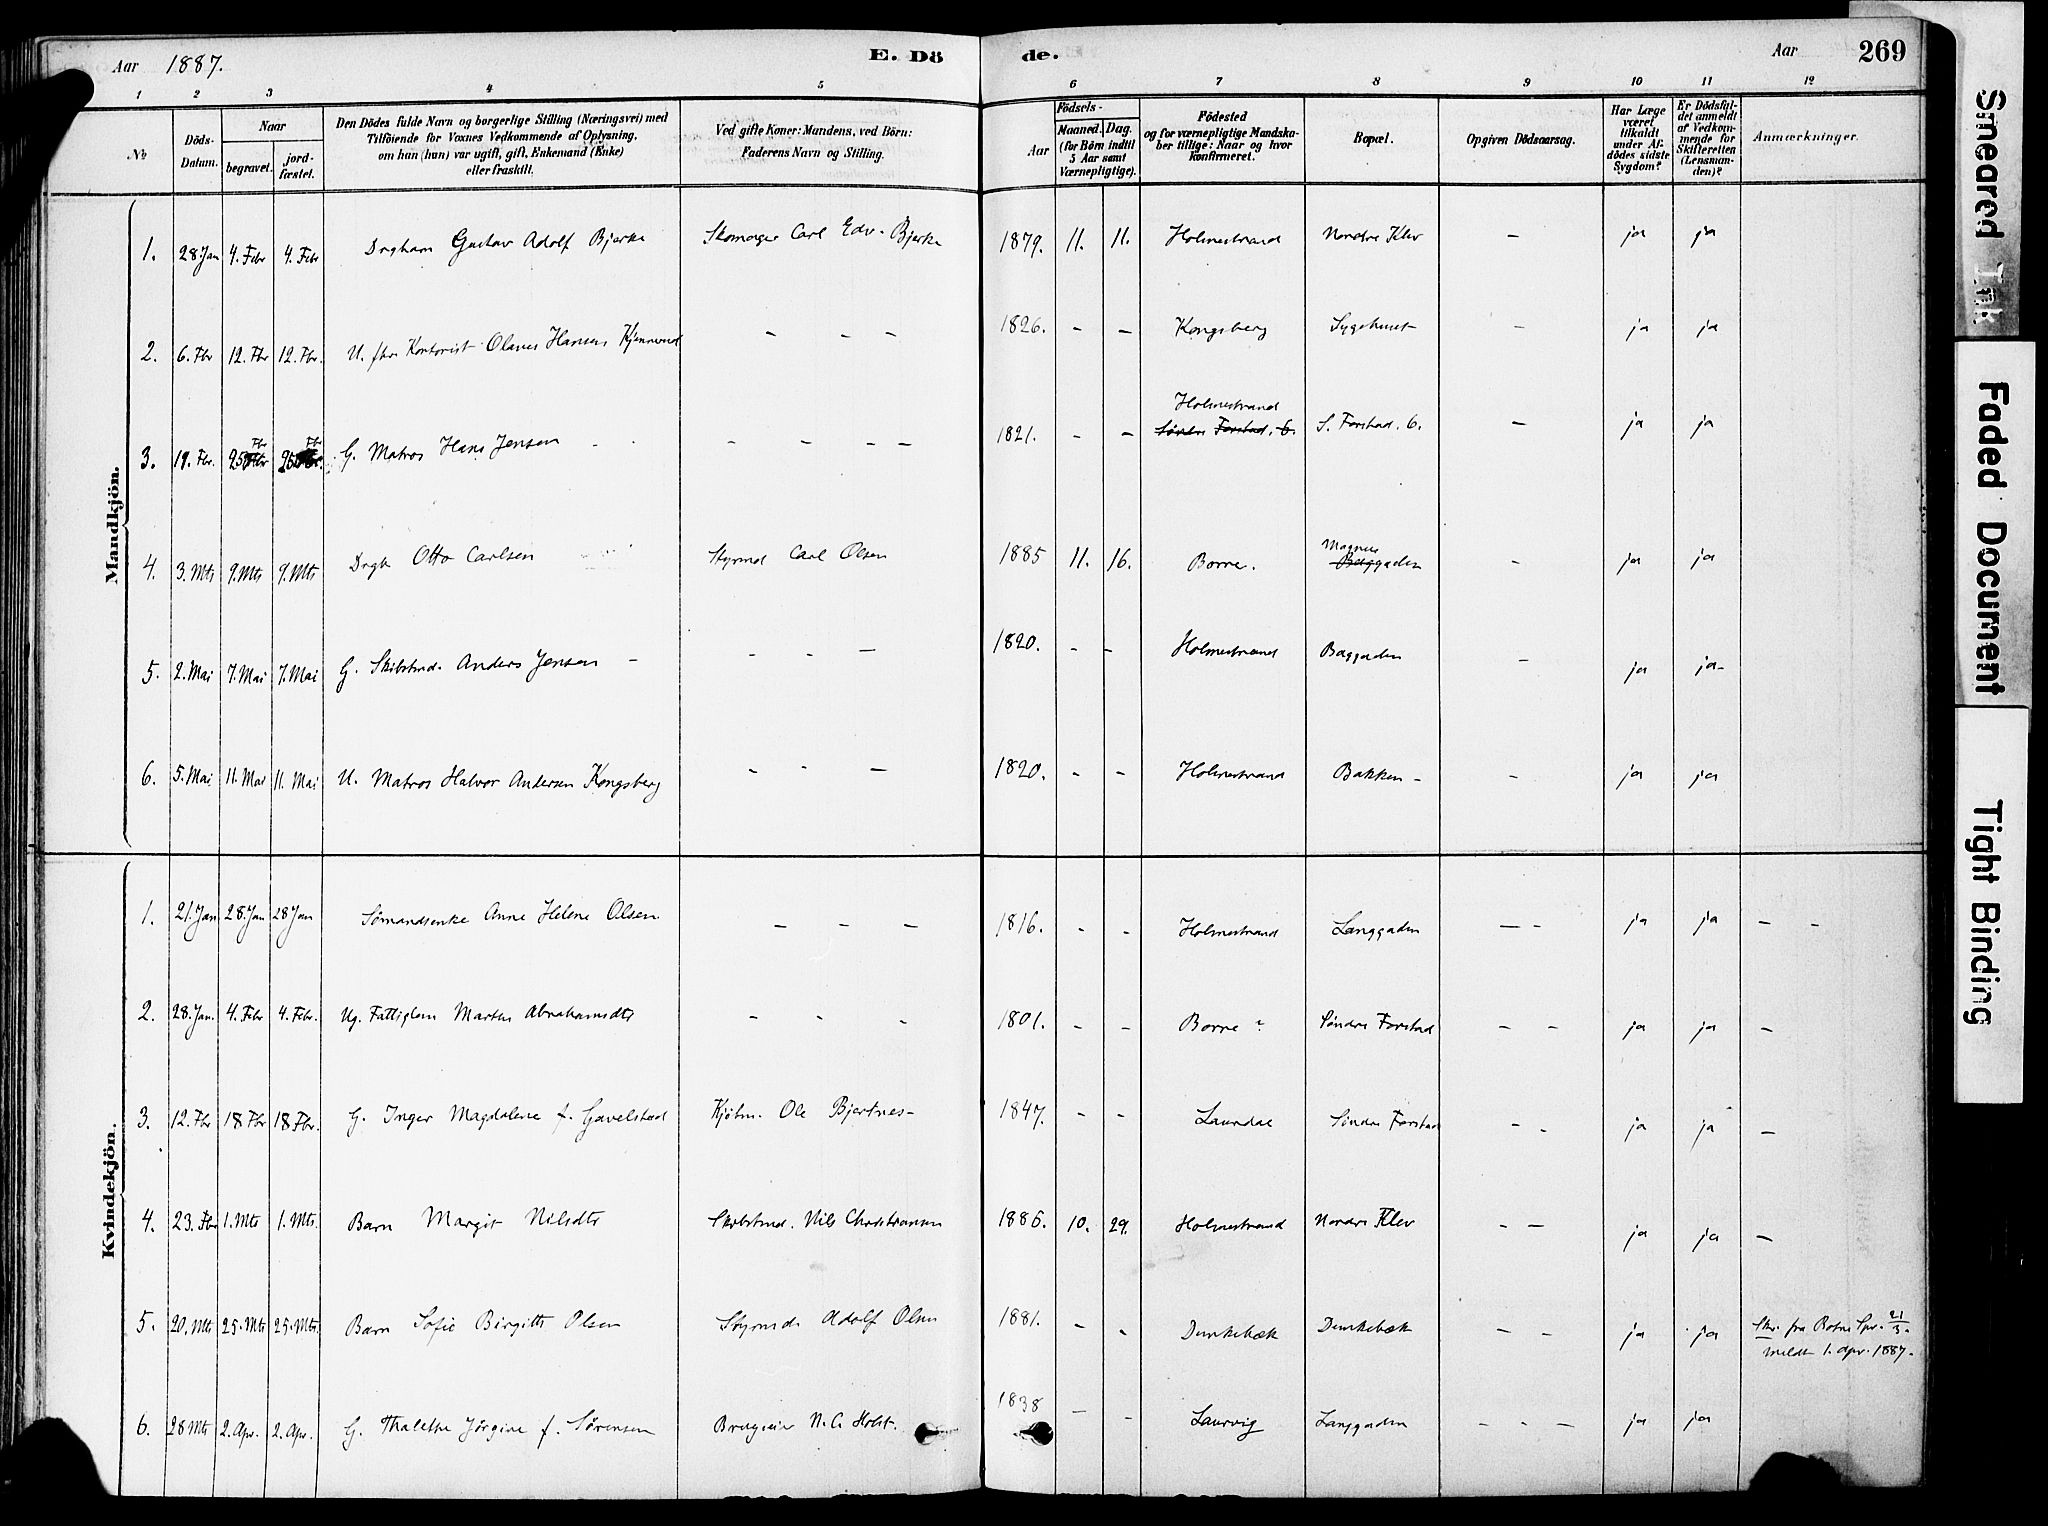 Aar 1887. E. Dö de. Aar 269
1 2 3 4 5 6 7 8 9 10 11 12
No
Döds-
Datum.
Naar
begravet.
jord-
fæstet.
Den Dödes fulde Navn og borgerlige Stilling (Næringsvei) med
Tilföiende for Voxnes Vedkommende af Oplysning,
om han (hun) var ugift, gift, Enkemand (Enke)
eller fraskilt.
Ved gifte Koner: Mandens, ved Börn:
Faderens Navn og Stilling.
Födsels-
Aar
Maaned. Dag.
(for Börn indtil
5 Aar samt
Værnepligtige).
Födested
og for værnepligtige Mandska-
ber tillige: Naar og hvor
konfirmeret.
Bopæl.
Opgiven Dödsaarsag.
Har Læge
været
tilkaldt
under Af-
dödes sidste
Sygdom?
Er Dödsfal-
det anmeldt
af Vedkom-
mende for
Skifteretten
(Lensman-
den)?
Anmærkninger.
Mandkjön.
1. 28 Jan 4. Febr 4. Febr Drgbarn Gustav Adolf Bjerke Skomager Carl Edv. Bjerke 1879. 11. 11. Holmestrand Nordre Klev — ja ja
2. 6. Fbr 12. Fbr 12. Fbr. U. fhv Kontorist Olaves Hansen — — — 1826. — — Kongsberg Sygehuset — ja ja
3. 19. Fbr. 25 Fbr 25 Fbr G. Matros Hans Jensen — — — — 1821. — — Holmestrand
Søndre Forstad. 6. S. Forstad. 6. — ja ja
4. 3. Mts 9. Mts 9. Mts Drgb Otto Carlsen Styrmd Carl Olsen 1885 11. 16. Borre. Magnus
Baggaden — ja ja
5. 2. Mai 7. Mai 7. Mai G. Skibstmd. Anders Jensen — — — — 1820. — — Holmestrand Baggaden — ja ja —
6. 5. Mai 11. Mai 11. Mai U. Matros Halvor Andersen Kongsberg — — — 1820. — — Holmestrand Bakken — — ja ja
Kvindekjön.
1. 21. Jan 28. Jan 28 Jan Sømandsenke Anne Helene Olsen — — — 1816. — — Holmestrand Langgaden — — ja ja — —
2. 28. Jan. 4. Febr 4. Febr. Ug. Fattiglem Marthe Abrahamsdtr — — — 1801. — — Borre ? Søndre Forstad — — ja ja —
3. 12. Fbr 18 Fbr 18 Fbr. G. Inger Magdalene f. Gavelstad Kjøbm. Ole Bjertnes — 1847. — — Laurdal Søndre Forstad — — ja ja —
4. 23. Fbr 1. Mts 1. Mts. Barn Margit Nilsdtr Skibstmd. Nils Christiansen 1886. 10. 29. Holmestrand Nordre Klev — — ja ja —
5. 20. Mts 25. Mts 25. Mts. Barn Sofie Birgitte Olsen Styrmd. Adolf Olsen 1881. — — Dunkebæk Dunkebæk — — ja ja Skr. fra Botne Spr. 21/3.
meldt 1. Apr. 1887.
6. 28 Mts 2. Apr. 2. Apr. G. Thalette Jørgine f. Sørensen N. C. Holst. 1838 — — Laurvig Langgaden — — — ja ja
Smeared Ink
Faded Document
Tight Binding